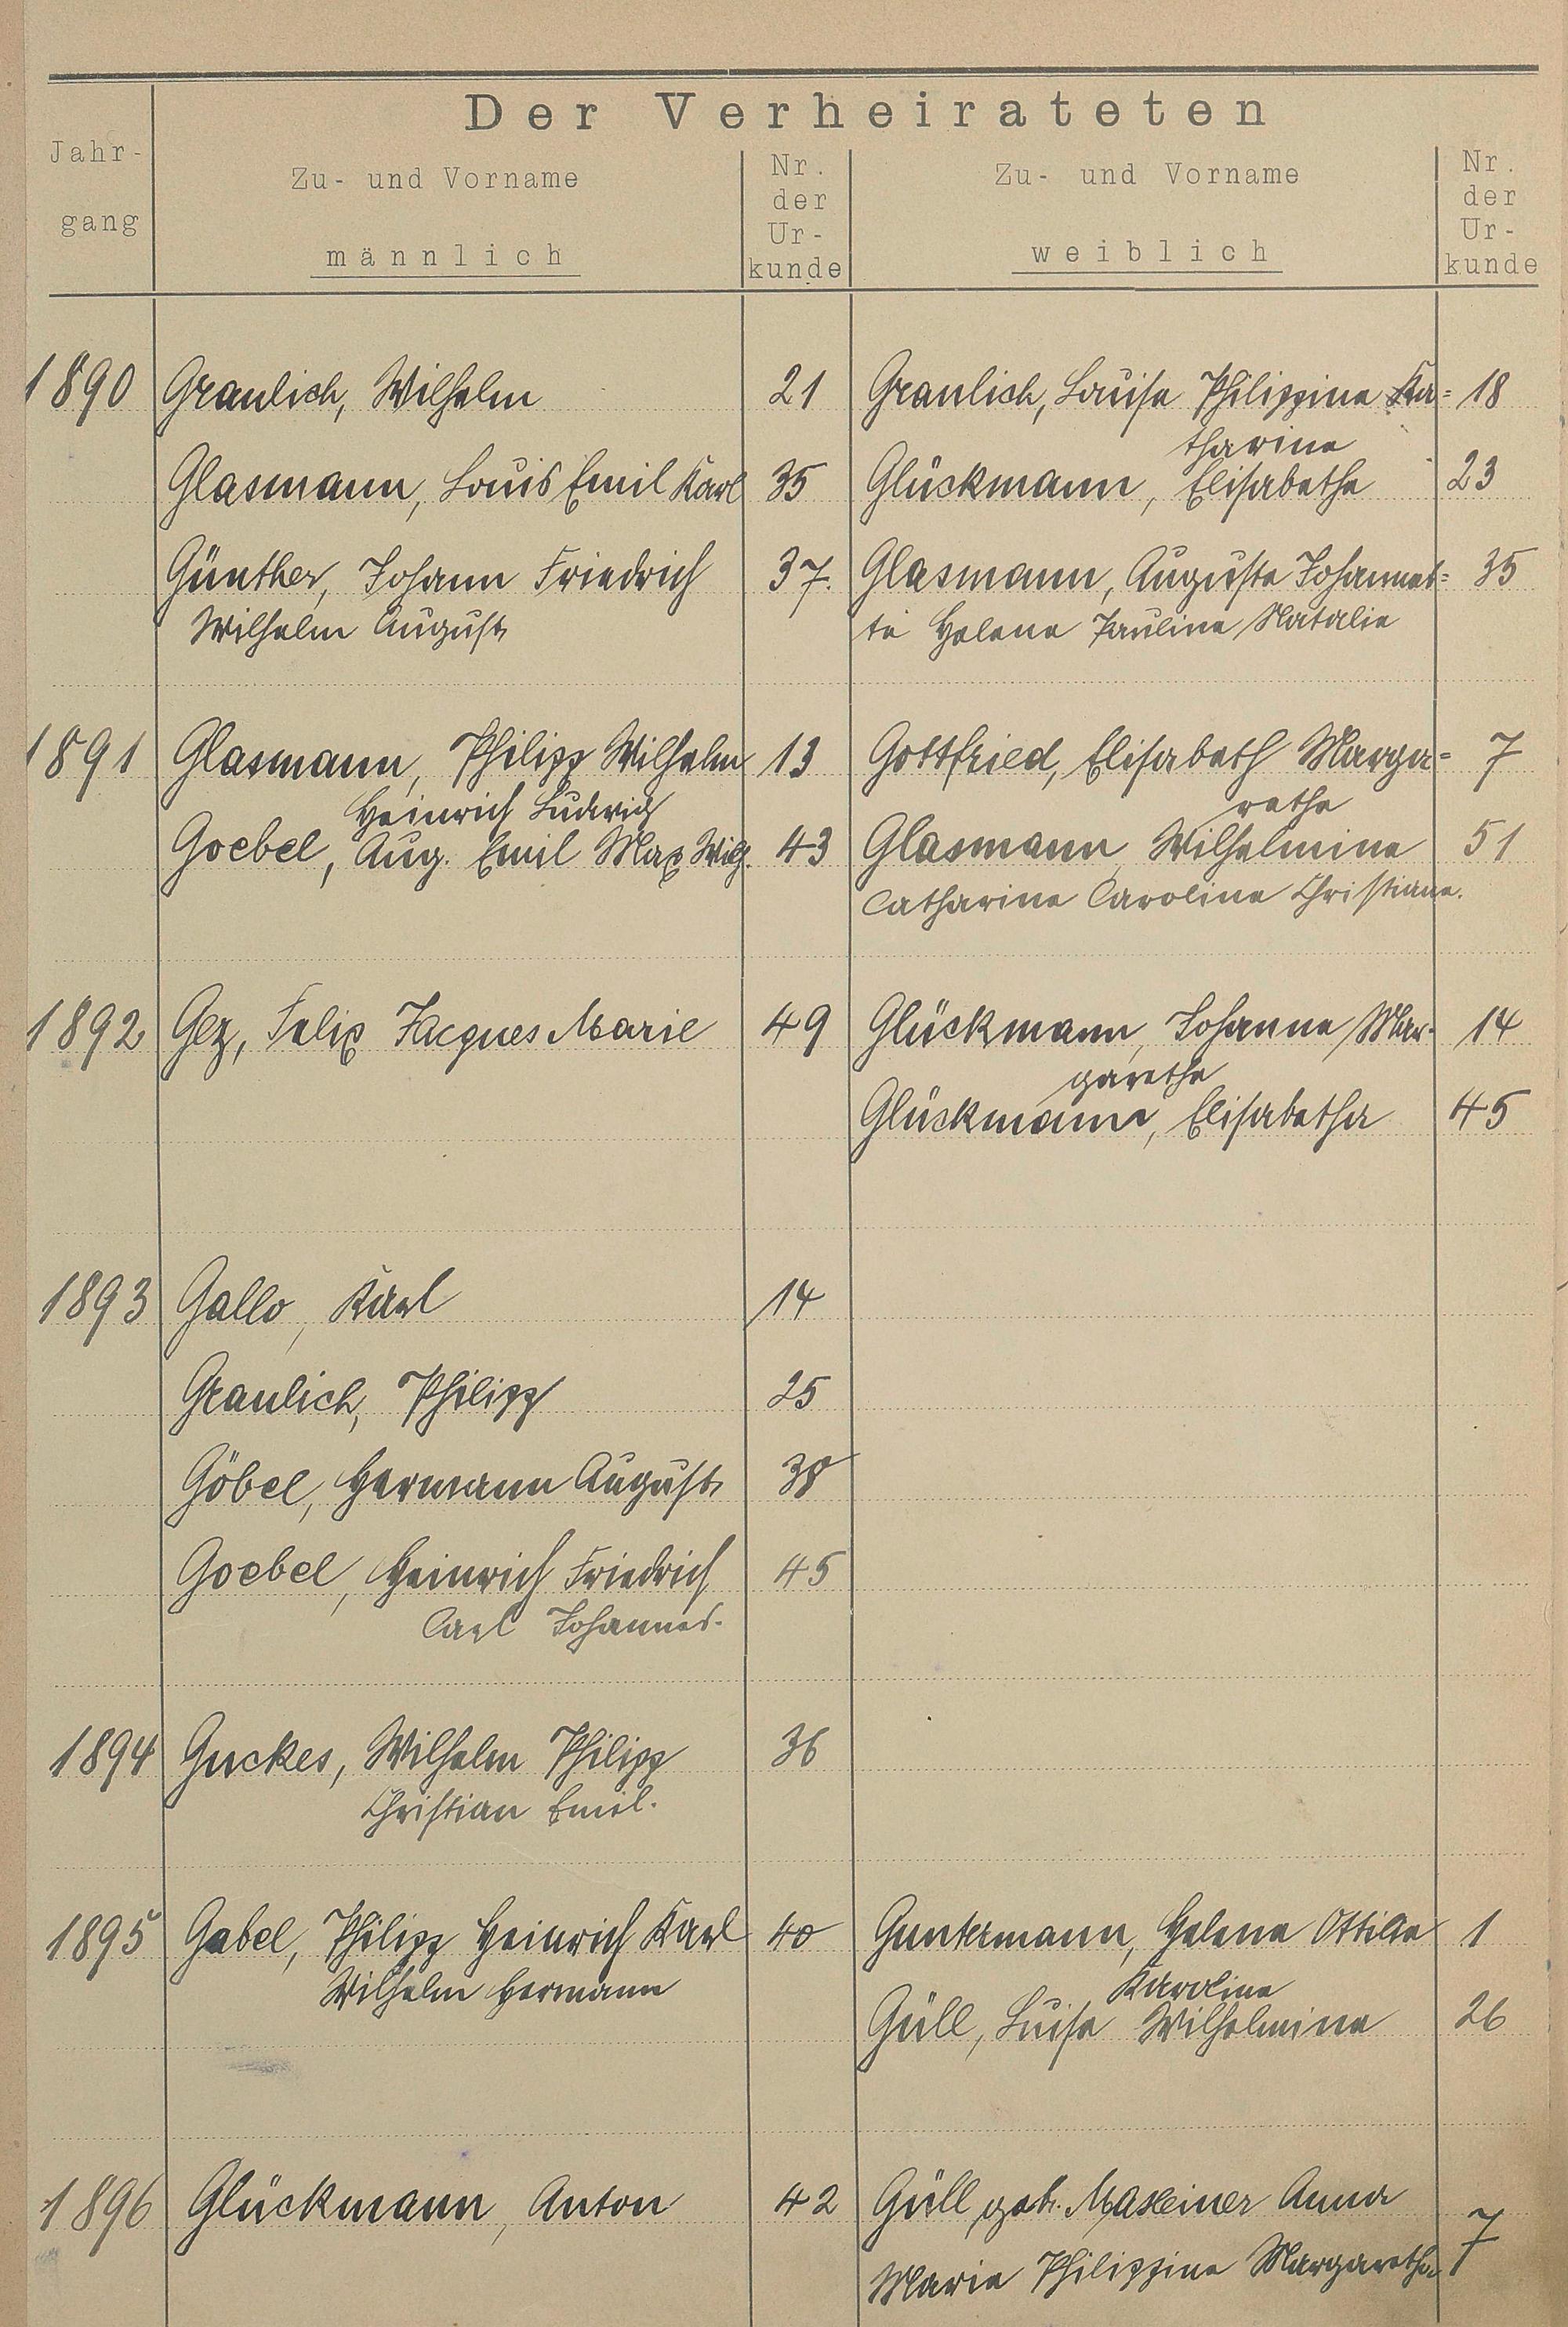 Der Verheirateten
Jahr-
gang
Zu- und Vorname
männlich
Nr.
der
Ur-
kunde
Zu- und Vorname
weiblich
Nr.
der
Ur-
kunde
1890 Graulich, Wilhelm 21 Graulich, Louise Philippine Ka= 18
tharine
Glasmann, Louis Emil Karl 35 Glückmann, Elisabethe 23
Günther, Johann Friedrich 37. Glasmann, Auguste Johannet= 35
Wilhelm August te Helene Pauline Natalie
1891 Glasmann, Philipp Wilhelm 13 Gottfried, Elisabeth Marga= 7
Heinrich Ludwig rethe
Goebel, Aug. Emil Max Wilh. 43 Glasmann Wilhelmine 51
Catharine Caroline Christiane.
1892 Gez, Felix Jacques Marie 49 Glückmann, Johanne Mar- 14
garethe
Glückmann, Elisabetha 45
1893 Gallo, Karl 14
Graulich, Philipp 25
Göbel, Hermann August 38
Goebel, Heinrich Friedrich 45
Carl Johannes.
1894 Guckes, Wilhelm Philipp 36
Christian Emil.
1895 Gabel, Philipp Heinrich Karl 40 Guntermann, Helene Ottilie 1
Wilhelm Hermann Karoline
Güll, Luise Wilhelmine 26
1896 Glückmann, Anton 42 Güll, geb. Maxeiner Anna
Marie Philippine Margarethe 7